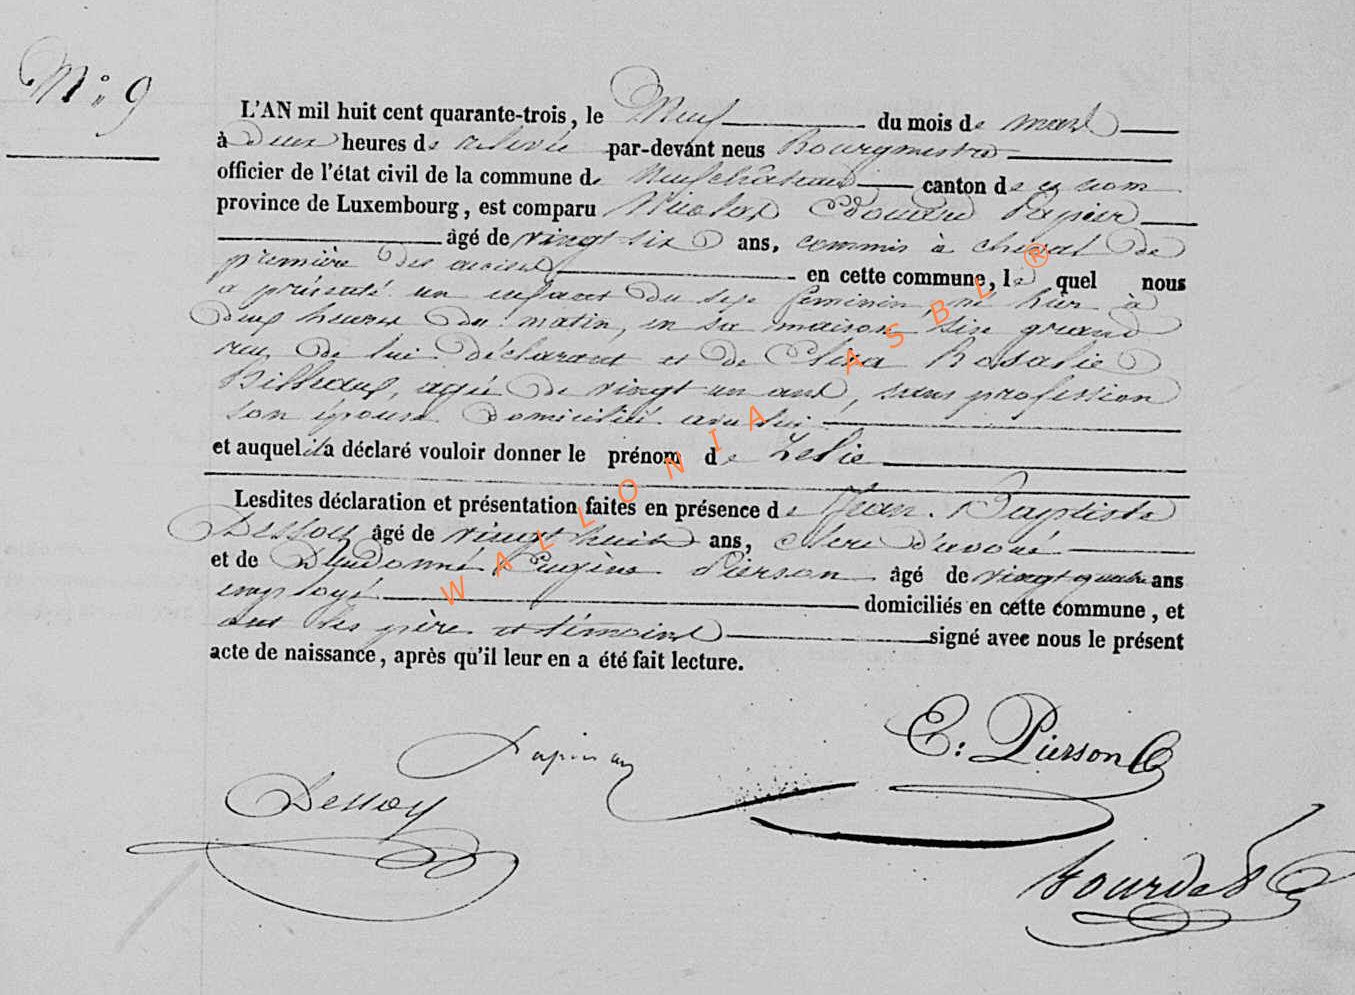 N° 9
L'AN mil huit cent quarante-trois, le Neuf du mois de mars
à deux heures de relevée par-devant nous Bourgmestre
officier de l'état civil de la commune de Neufchâteau canton de ce nom
province de Luxembourg, est comparu Nicolas Edouard Papier
âgé de vingt six ans, commis à cheval de
première des accises en cette commune, le quel nous
a présenté un enfant du sexe féminin né hier à
deux heures du matin, en sa maison sise grand
rue, de lui déclarant et de Clara Rosalie
agée de vingt un ans, sans profession
son épouse domiciliée avec lui
et auquel il a déclaré vouloir donner le prénom de Zelie
Lesdites déclaration et présentation faites en présence de Jean Baptiste
Dessoy âgé de vingt huit ans, clerc d'avoué
et de Dieudonné Eugène Pierson âgé de vingt quatre ans
employé domiciliés en cette commune, et
ont les père et témoins signé avec nous le présent
acte de naissance, après qu'il leur en a été fait lecture.
E: Pierson
Dessoy
WALLONIA ASBL ®